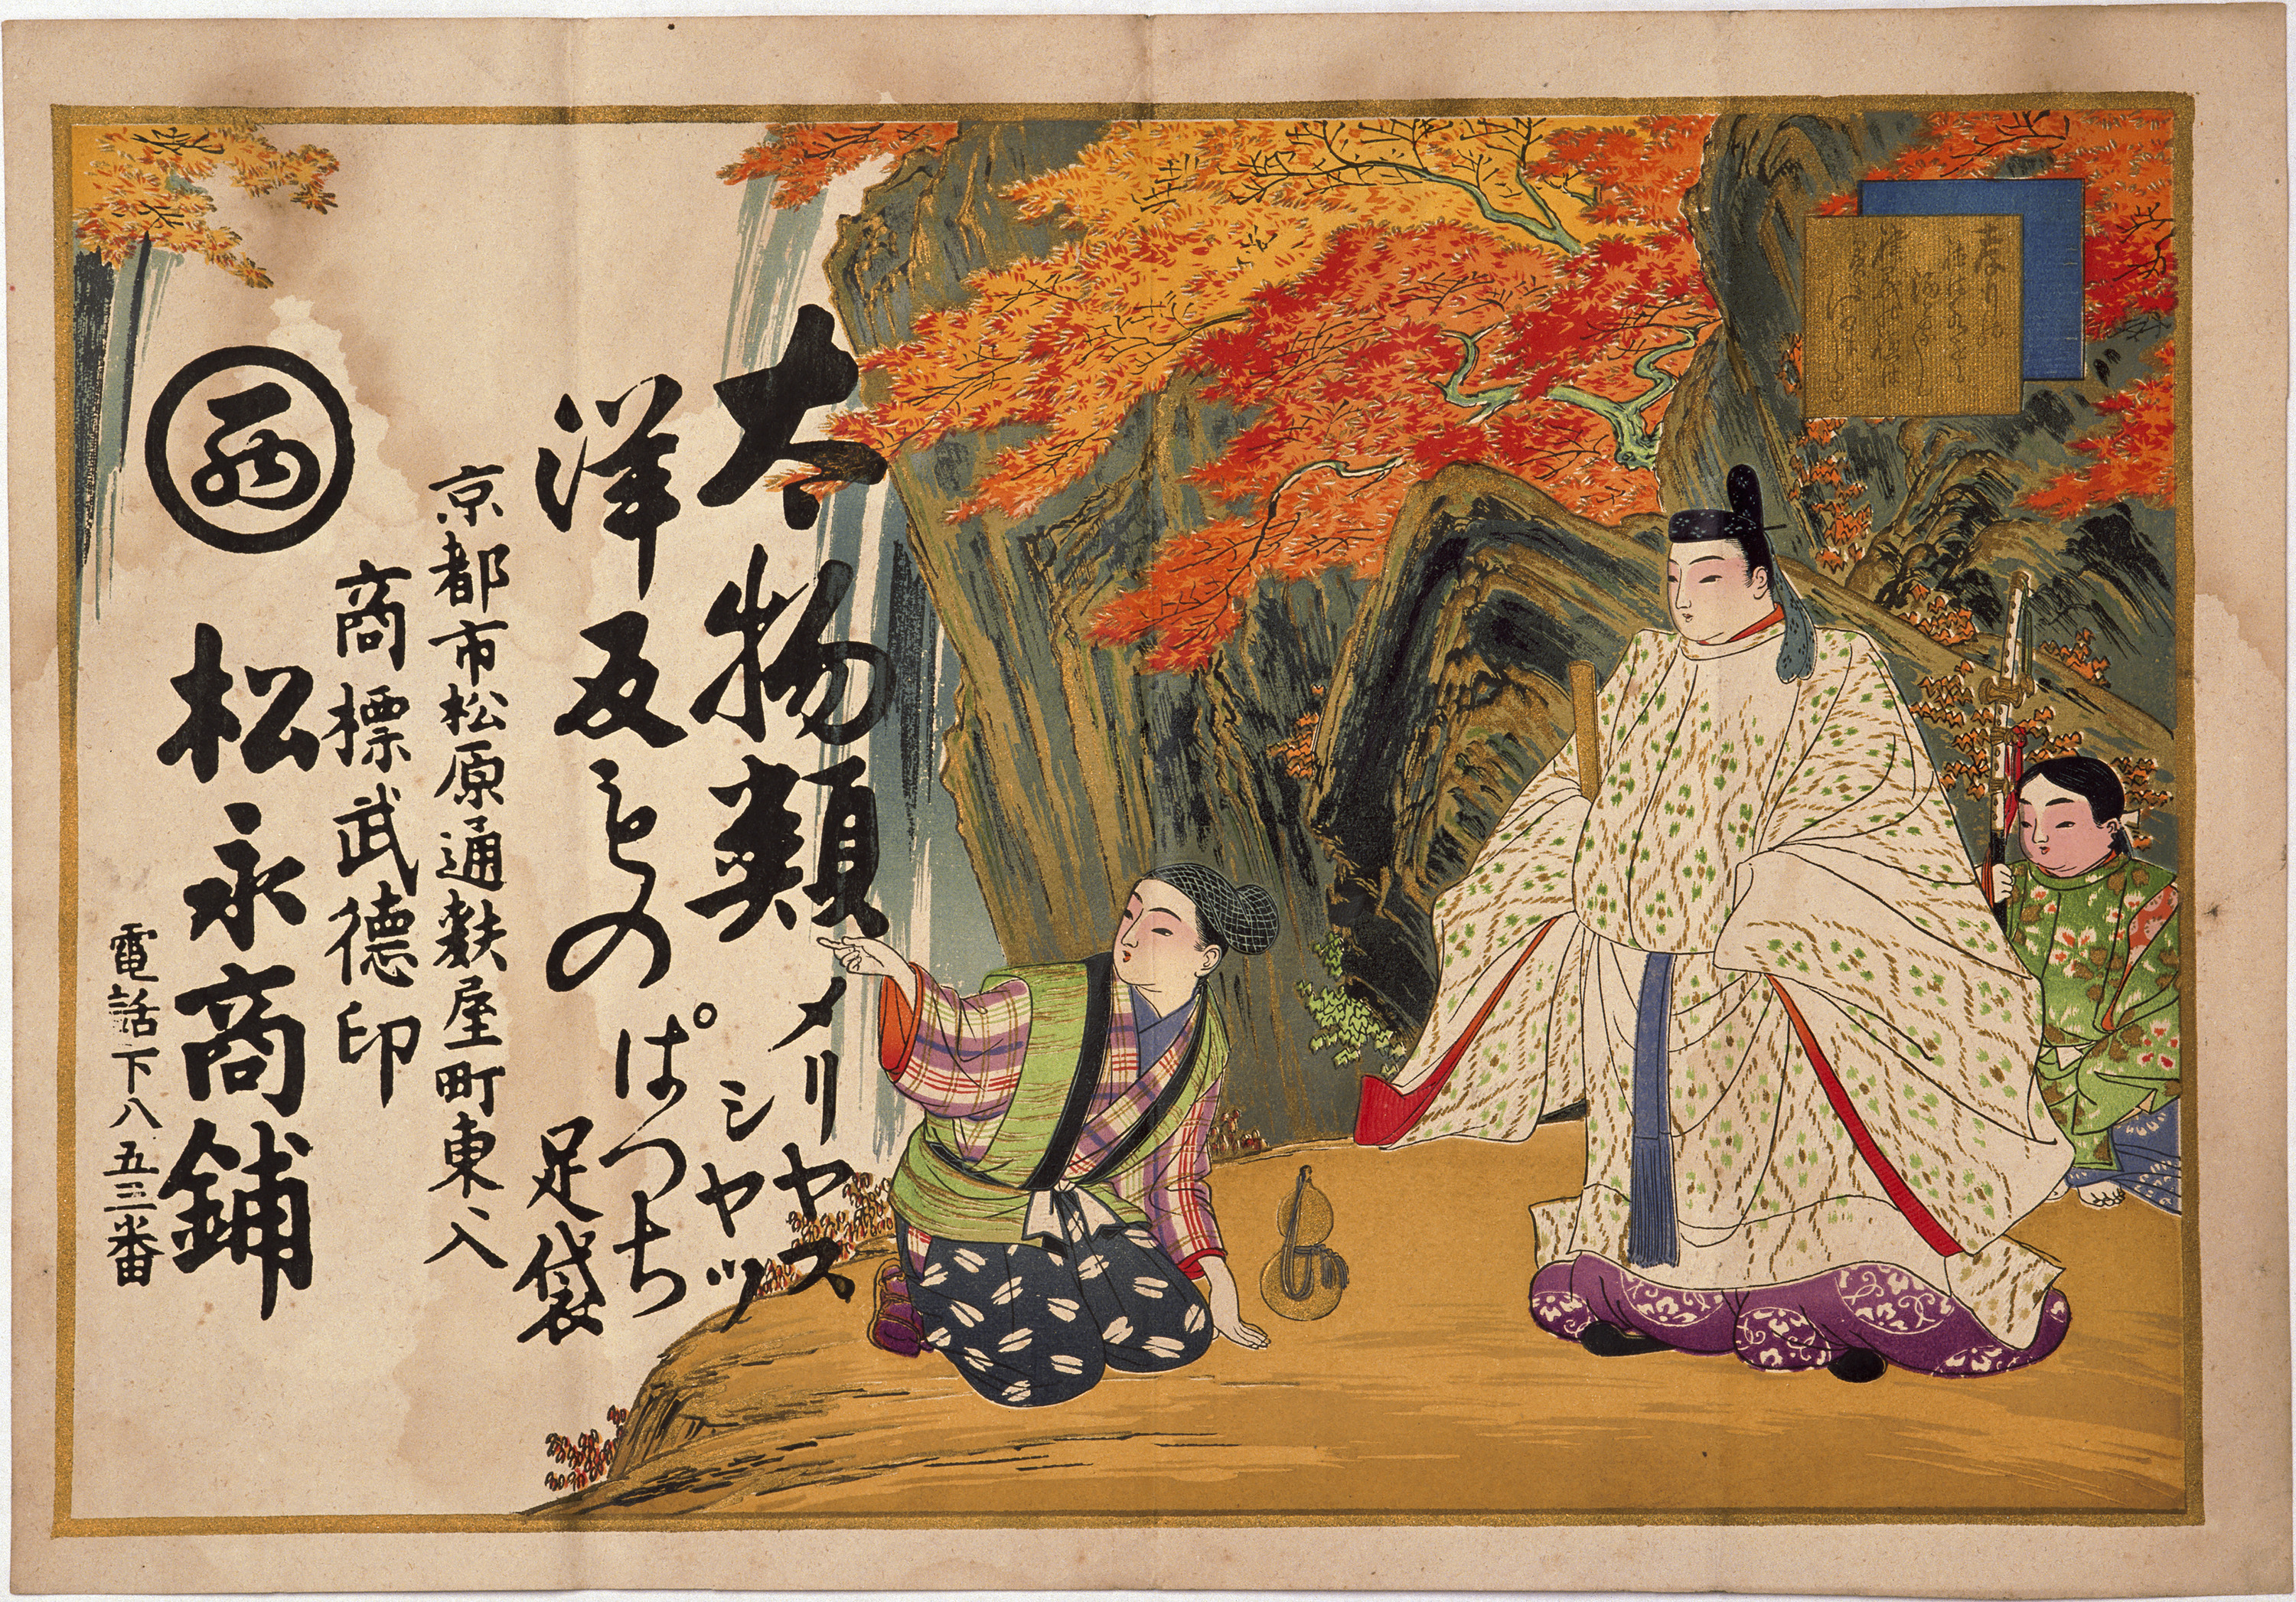 太物類
メリヤス
シヤツ
洋反もの
ぱつち
足袋
京都市松原通麩屋町東入
商標武徳印
松永商鋪
電話下八五三番